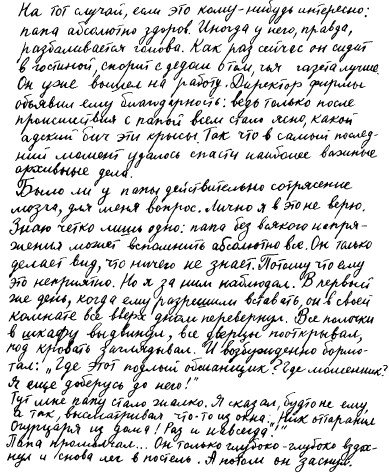 На тот случай, если это кому-нибудь интересно:
папа абсолютно здоров. Иногда у него, правда,
разбаливается голова. Как раз сейчас он сидит
в гостиной, спорит с дедом о том, чья газета лучше.
Он уже вышел на работу. Директор фирмы
объявил ему благодарность: ведь только после
происшествия с папой всем стало ясно, какой
адский бич эти крысы. Так что в самый послед-
ний момент удалось спасти наиболее важные
архивные дела.
Было ли у папы действительно сотрясение
мозга, для меня вопрос. Лично я в это не верю.
Знаю четко лишь одно: папа без всякого напря-
жения может вспомнить абсолютно все. Он только
делает вид, что ничего не знает. Потому что ему
это неприятно. Но я за ним наблюдал. В первый
же день, когда ему разрешили вставать, он в своей
комнате все вверх дном перевернул. Все полочки
в шкафу выдвинул, все дверцы пооткрывал,
под кровать заглядывал. И возбужденно бормо-
тал: „Где этот подлый обманщик? Где мошенник?
Я еще доберусь до него!"
Тут мне папу стало жалко. Я сказал, будто не ему,
а так, высматривая что-то из окна: „Ник оттаранил
Огурцаря из дома! Раз и навсегда!"
Папа промолчал... Он только глубоко-глубоко вздох-
нул и снова лег в постель. А потом он заснул.